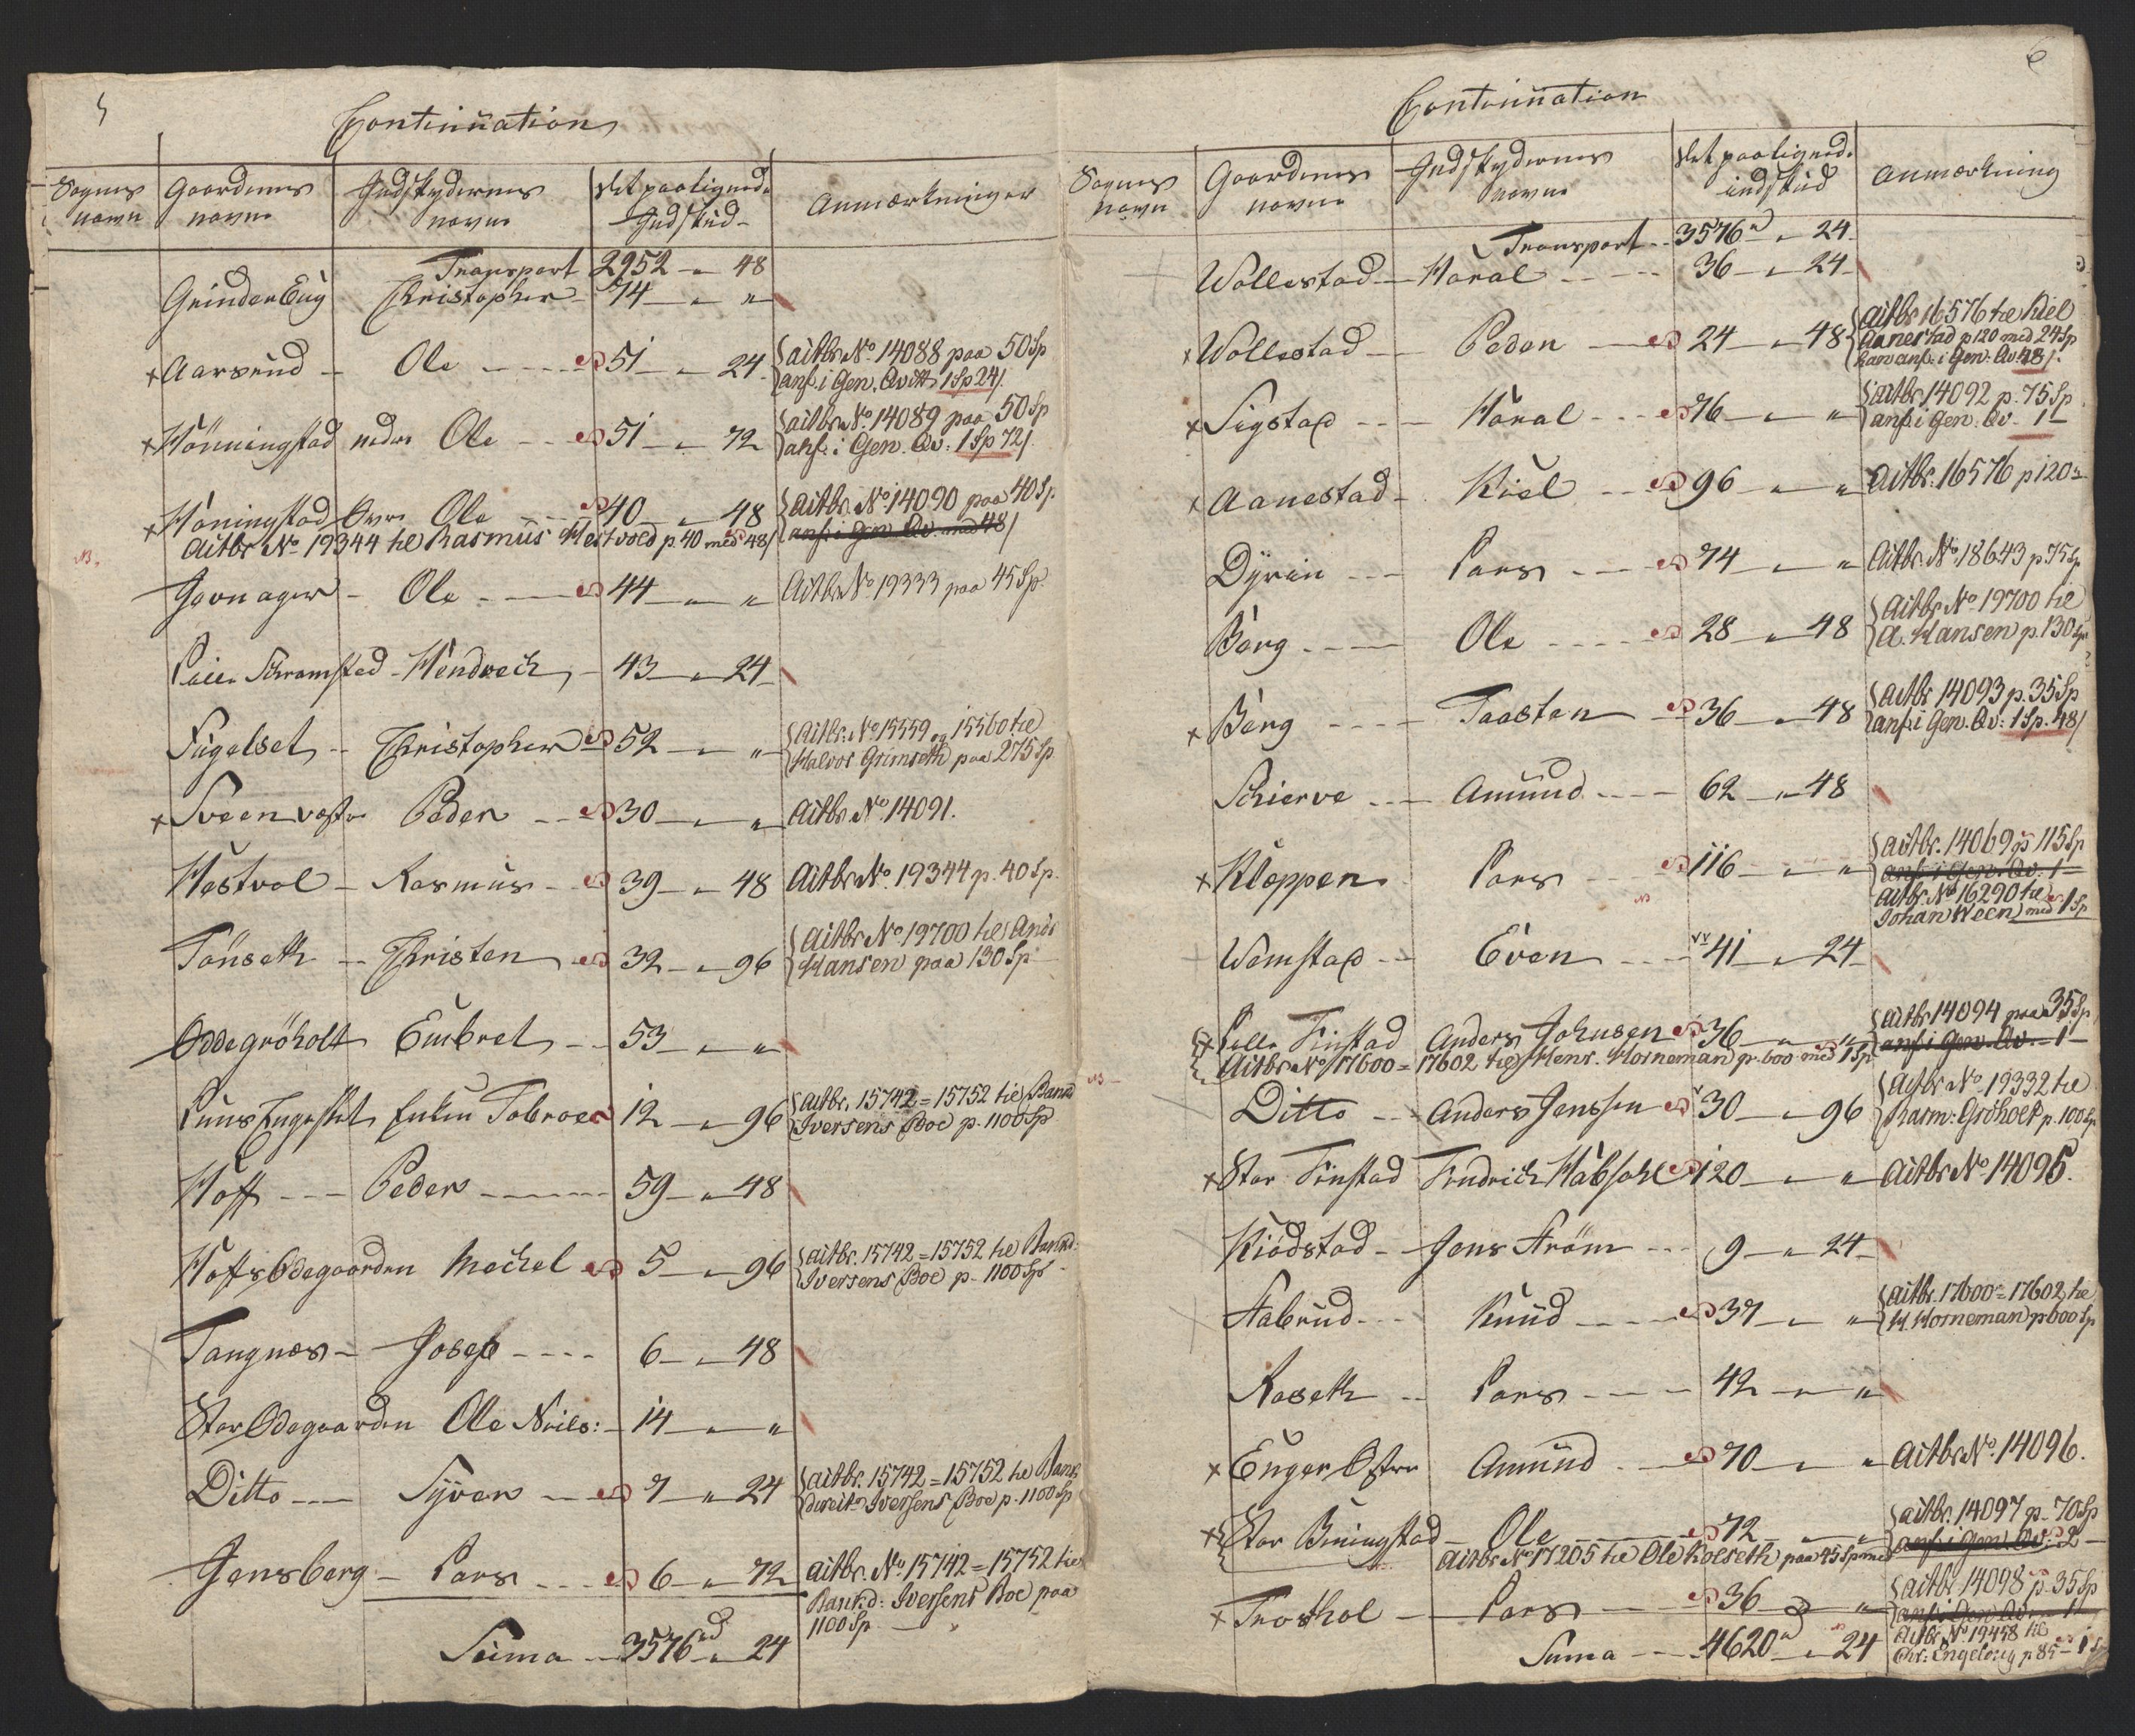 5
Continuation
Sognes navn | Gaardenes navne | Indskydernes navne | Det paalignede Indskud | Anmærkninger
Transport 2952 - 48
Grinder Eng Christopher 74 - "
x Aarsrud - Ole 51 - 24 Aitbr. No. 14088 paa 50 Sp
anf. i Gen. Qvitt 1 Sp 24/
x Hönningstad nedre Ole 51 - 72 Aitbr No. 14089 paa 50 Sp
anf. i Gen. Qv: 1 Sp 72/
x Höningstad Øvre Ole 40 - 48 Aitbr. No. 14090 paa 40 Sp.
anf. i Gen Qv. med 48/
NB. Aitbr No 19344 til Rasmus Hestvold p. 40 med 48/
Gaunager - Ole 44 - " Aitbr No 19333 paa 45 Sp.
Schramsted - Hendrich 43 - 24
Fügelset - Christopher 52 - " Aitbr. No 15559 og 15560 til
Halvor Grimseth paa 275 Sp.
x Sveen vestre Peder 30 - " Aitbr. No 14091.
Hestvol - Rasmus 39 - 48 Aitbr No. 19344 p. 40 Sp.
Tönseth - Christen 32 - 96 Aitbr No. 19700 til And:
Hansen paa 130 Sp
Oddegröholt Embret 53 - "
12 - 96 Aitbr. 15742 = 15752 til Bankd
Iversens Boe p. 1100 Sp
Hoff - Peder 59 - 48
Hoffs Ødegaarden Mechel 5 - 96 Aitbr. 15742 = 15752 til Bankd:
Iversens Boe p. 1100 Sp
Tangnæs - Josep 6 - 48
Stor Ødegaarden Ole Niels: 14 - "
Ditto - Syver 7 - 24 Aitbr. 15742 = 15752 til Bank
direkt. Iversens Boe p. 1100 Sp
Jensberg - Lars 6 - 72 Aitbr. No. 15742 = 15752 til
Bankd: Iversens Boe paa
1100 Sp
Suma 3576 - 24
6
Continuation
Sognes navn | Gaardenes navne | Indskydernes navne | Det paalignede indskud | Anmærkning
Transport 3576 - 24
Wollestad - Haral 36 - 24
x Wollestad - Peder 24 - 48 Aitbr 16576 til Kiel
Aanestad p 120 med 24 Sp
anf. i Gen: Qv 48/.
x Sigstad - Haral 76 - " Aitbr 14092 p. 75 Sp
anf. i Gen. Qv - 1 -
x Aanestad - Kiel 96 - " Aitbr. 16576 p 120
Dyrin - Lars 74 - " Aitbr. No. 18643 p. 75 Sp
Berg - Ole 28 - 48 Aitbr No 19700 til
A. Hansen p. 130 Sp
x Berg - Taasten 36 - 48 Aitbr 14093 p. 35 Sp
anf. i Gen. Qv: 1 Sp. 48/
Schierve - Amund 62 - 48
x Kloppen Lars 116 - " Aitbr. 14069 p 115 Sp
anf i Gen. Qv. 1 -
NB Aitbr. No 16290 til
Johan Ween med 1 Sp
Wemstad - Even 41 - 24
x Lille Finstad Anders Johnsen 36 - " Aitbr 14094 paa 35 Sp
anf. i Gen. Qv. - 1 -
Aitbr No 17600 = 17602 til Henr. Horneman p. 600 med 1 Sp.
NB - Ditto - Anders Jenssen 30 - 96 Aitbr No. 19332 til
Rasm: Gröholt p. 100 Sp
x Stor Finstad Fredrich Habsahl 120 - " Aitbr No 14095.
Kiödstad - Jens Ström 9 - 24
Stabrud - Knud 37 - " Aitbr. 17600 = 17602 til
H. Horneman p 600 Sp
Raseth - Lars 42 - "
x Enger Østre Amund 70 - " Aitbr No. 14096.
x Stor Beningstad - Ole 72 - " Aitbr. 14097 p. 70 Sp
anf i Gen Qv: 2 -
Aitbr No 17205 til Ole Kolseth paa 45 Sp med
x Trosthol - Lars 36 - " Aitbr 14098 p. 35 Sp
anf. i Gen Qv. - 1 -
Aitbr. No 19458 til
Chr: Engeloug p 85 - 1 Sp
Suma 4620 - 24